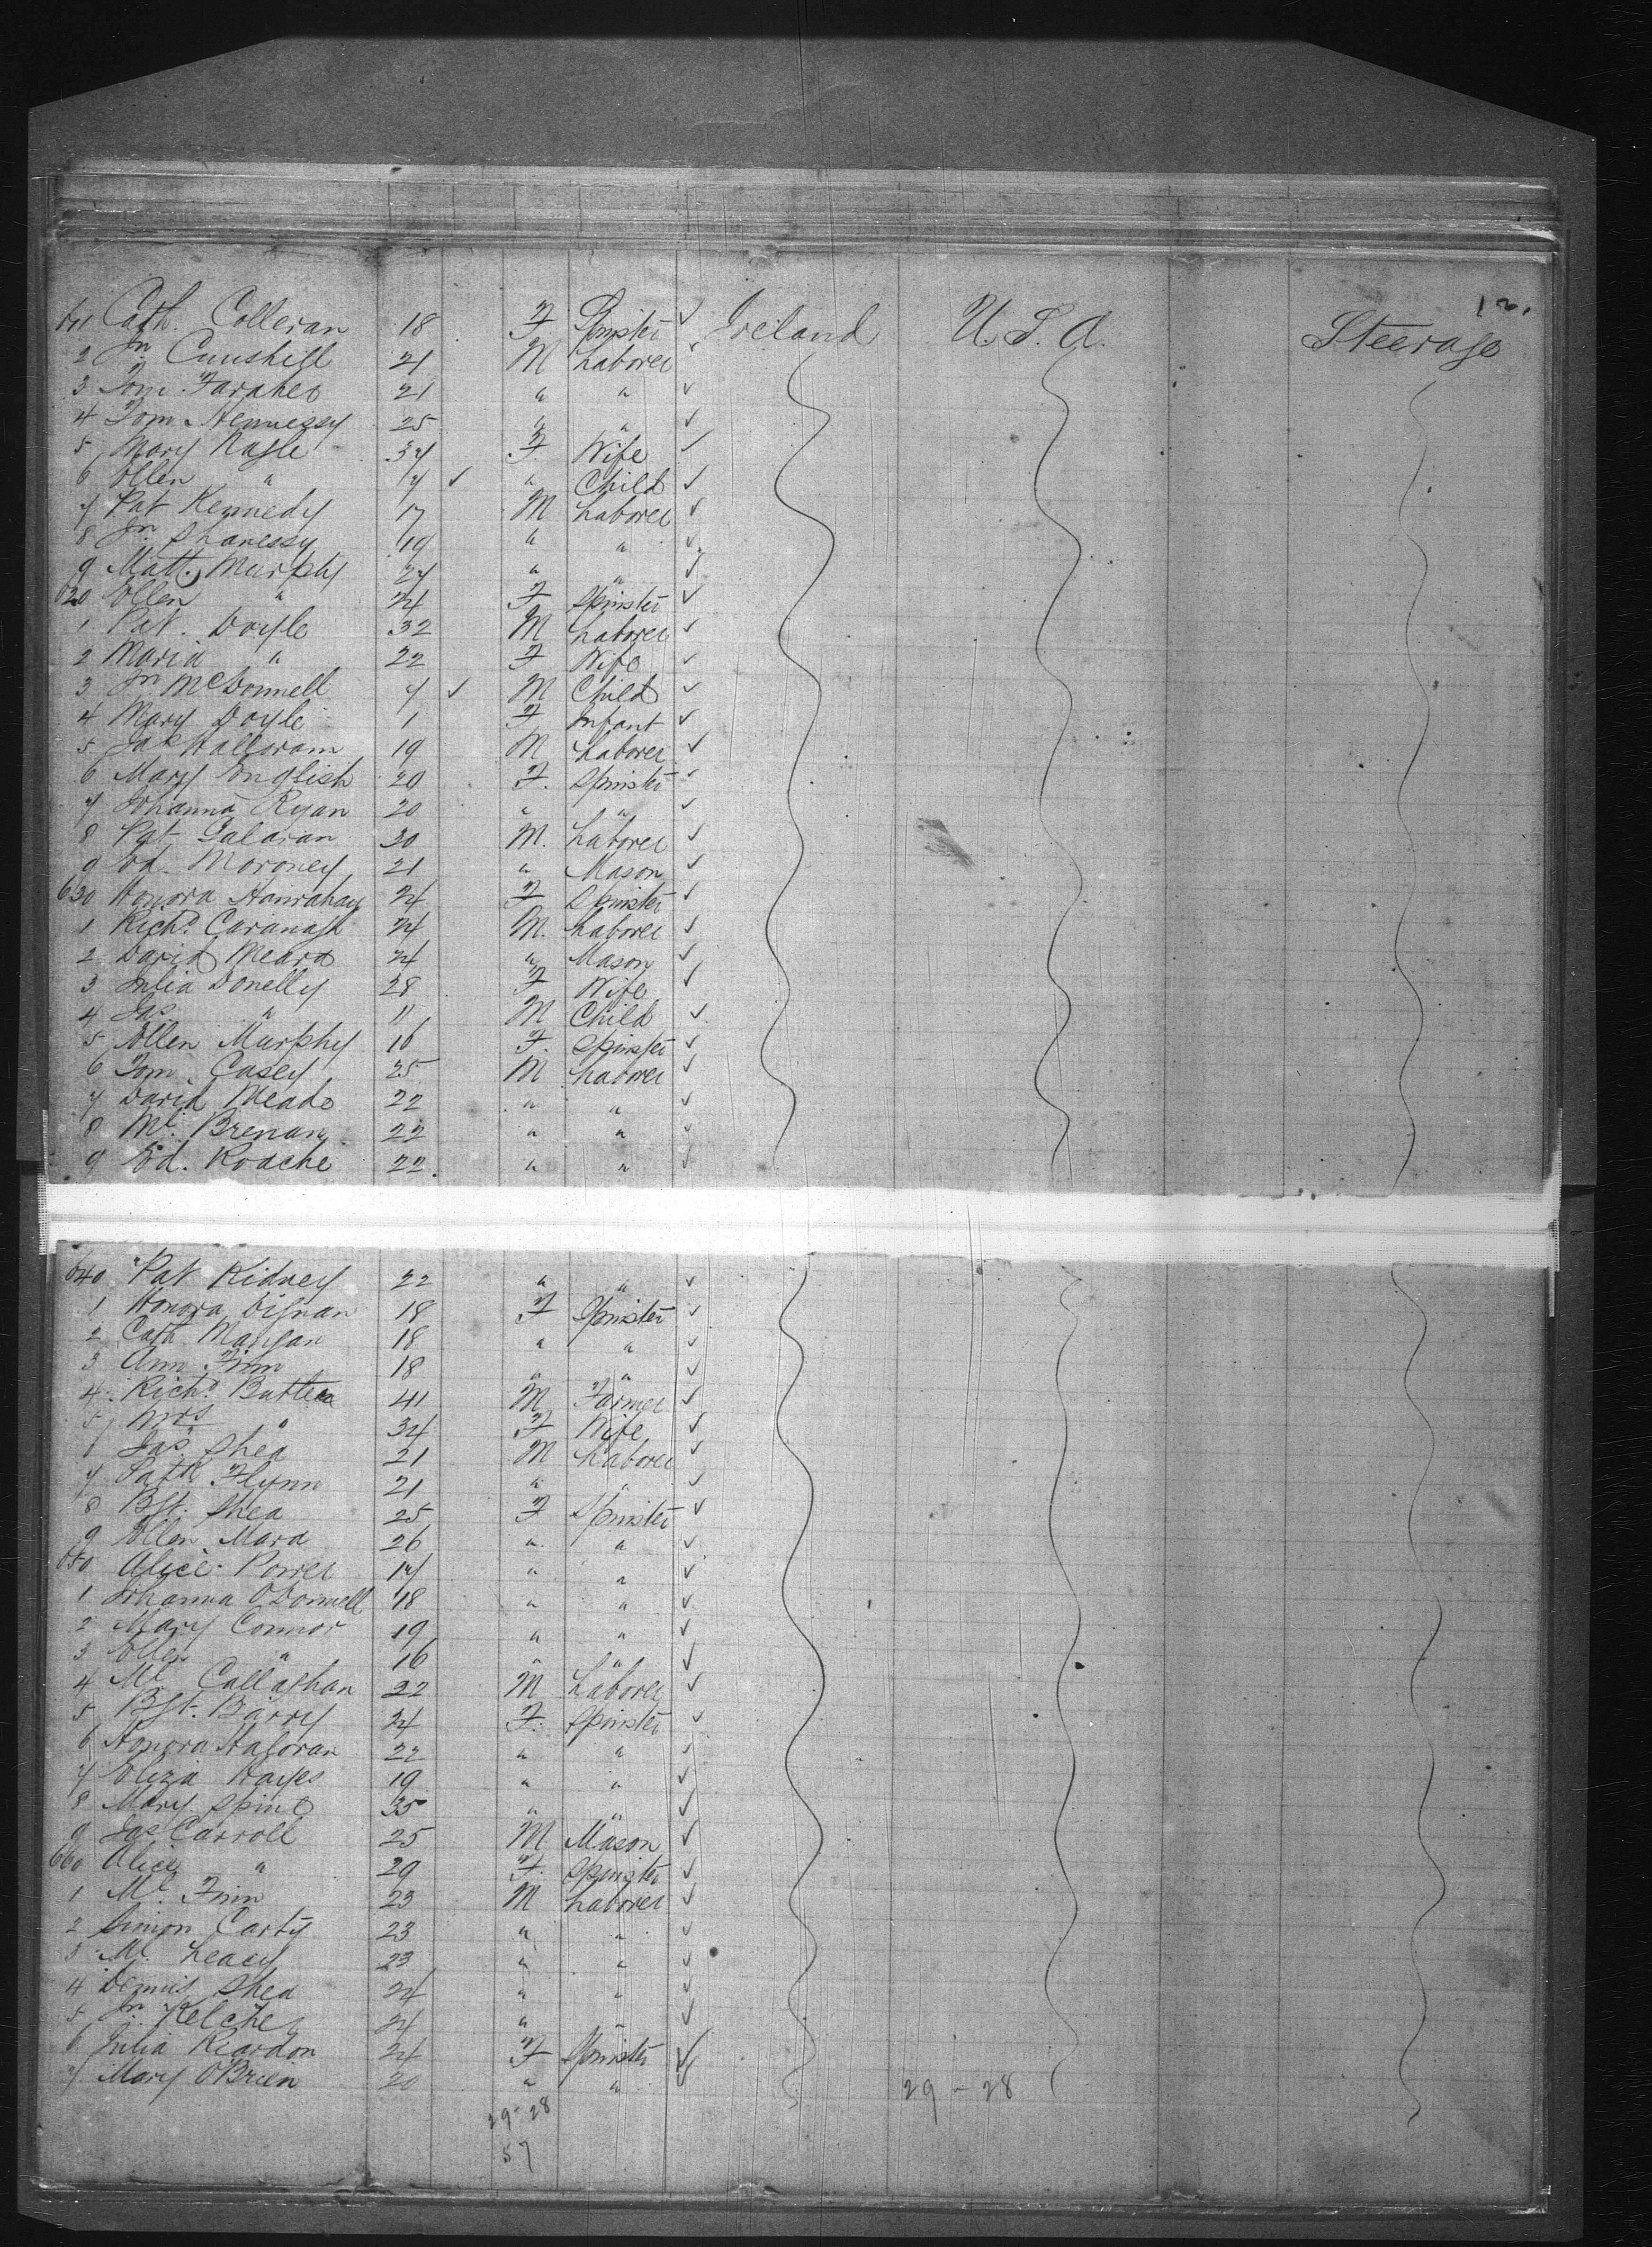 12.
611 Cath. Colleran 18 F Spinster ✓ Ireland U.S.A. Steerage
2 Jn Cuushill 21 M Laborer ✓
3 Tom. Faraher 21 " " ✓
4 Tom Hennessy 25 " " ✓
5 Mary Nagle 34 F. Wife ✓
6 Ellen " 7 ✓ " Child ✓
7 Pat Kennedy 17 M Laborer ✓
8 Jn Shanessy 19 " " ✓
9 Matt. Murphy 27 " " ✓
620 Ellen " 24 F Spinster ✓
1 Pat. Doyle 32 M Laborer ✓
2 Maria " 22 F Wife ✓
3 Jn McDonnell 7 ✓ M Child ✓
4 Mary Doyle 1 F Infant ✓
5 Jas Halloram 19 M. Laborer ✓
6 Mary English 20 F. Spinster ✓
7 Johanna Ryan 20 " " ✓
8 Pat Galaran 30 M. Laborer ✓
9 Ed. Moroney 21 " Mason ✓
630 Honora Hanrahan 24 F Spinster ✓
1 Richd Cavanagh 24 M. Laborer ✓
2 David Meara 24 " Mason ✓
3 Julia Donelly 28 F Wife ✓
4 Jas " 11 M Child ✓
5 Ellen Murphy 16 F. Spinster ✓
6 Tom. Casey 25 M Laborer ✓
7 David Meade 22 " " ✓
8 Ml. Brenan 22 " " ✓
9 Ed. Roache 22. " " ✓
640 Pat Kidney 22 " " ✓
1 Honora Dignan 18 F Spinster ✓
2 Cath Mangan 18 " " ✓
3 Ann Finn 18 " " ✓
4 Richd. Butler 41 M Farmer ✓
5 Mrs " 34 F Wife ✓
6 Jas Shea 21 M Laborer ✓
7 Patk Flynn 21 " " ✓
8 Bgt. Shea 25 F Spinster ✓
9 Ellen Mara 26 " " ✓
650 Alice Power 17 " " ✓
1 Johanna O'Donnell 18 " " ✓
2 Mary Connor 19 " " ✓
3 Ellen " 16 " " ✓
4 Ml Callaghan 22 M Laborer ✓
5 Bgt. Barry 24 F. Spinster ✓
6 Honora Hagoran 22 " " ✓
7 Eliza Hayes 19 " " ✓
8 Mary Spine 35 " " ✓
9 Jas Carroll 25 M Mason ✓
660 Alice " 29 F. Spinster ✓
1 Ml. Finn 23 M Laborer ✓
2 Simon Carty 23 " " ✓
3 Ml. Leacy 23 " " ✓
4 Dennis Shea 24 " " ✓
5 Jn Kelcher 24 " " ✓
6 Julia Riardon 24 F Spinster ✓
7 Mary O'Brien 20 " " ✓
29-28 29-28
57